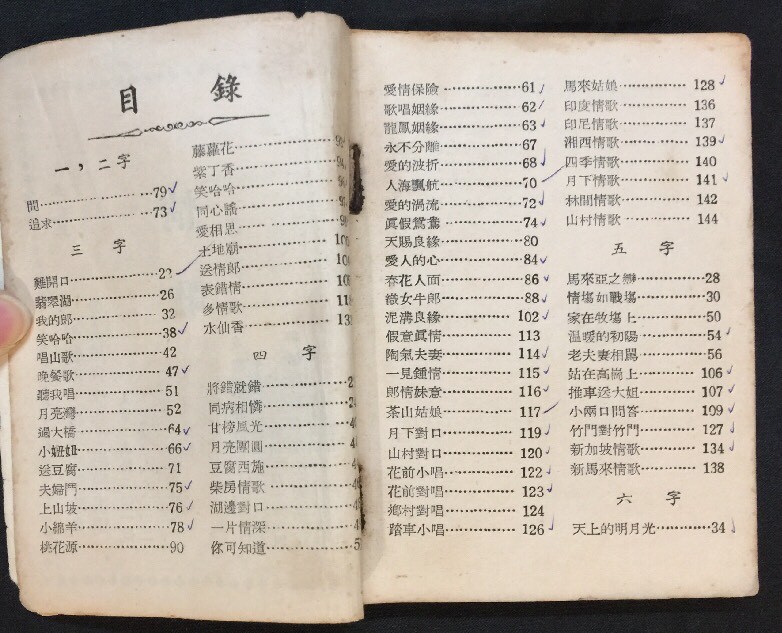 目錄
一，二字
問 79
追求 73
三字
難開口 22
翡翠湖 26
我的郎 32
笑哈哈 38
唱山歌 42
晚餐歌 47
聽我唱 51
月亮灣 52
過大橋 64
小妞妞 66
送豆腐 71
夫婦鬥 75
上山坡 76
小綿羊 78
桃花源 90
藤蘿花
紫丁香
笑哈哈
同心謠
愛相思
土地廟
送情郎
表錯情
多情歌
水仙香
四字
將錯就錯
同病相憐
甘榜風光
月亮團圓
豆腐西施
柴房情歌
湖邊對口
一片情深
你可知道
愛情保險 61
歌唱姻緣 62
龍鳳姻緣 63
永不分離 67
愛的波折 68
人海飄航 70
愛的渦流 72
眞假鴛鴦 74
天賜良緣 80
愛人的心 84
春花人面 86
織女牛郎 88
泥溝良緣 102
假意眞情 113
陶氣夫妻 114
一見鍾情 115
郎情妹意 116
茶山姑娘 117
月下對口 119
山村對口 120
花前小唱 122
花前對唱 123
鄉村對唱 124
踏車小唱 126
馬來姑娘 128
印度情歌 136
印尼情歌 137
湘西情歌 139
四季情歌 140
月下情歌 141
林間情歌 142
山村情歌 144
五字
馬來亞之戀 28
情塲如戰塲 30
家在牧塲上 50
溫暖的初陽 54
老夫妻相罵 56
站在高崗上 106
推車送大姐 107
小兩口問答 109
竹門對竹門 127
新加坡情歌 134
新馬來情歌 138
六字
天上的明月光 34